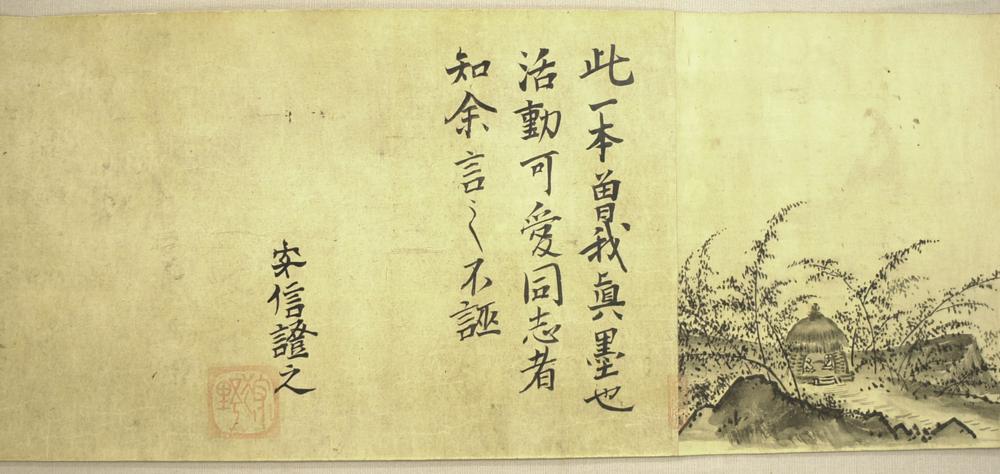 此一本曽我眞墨也
活動可愛同志者
知余言之不誣
安信證之
狩野